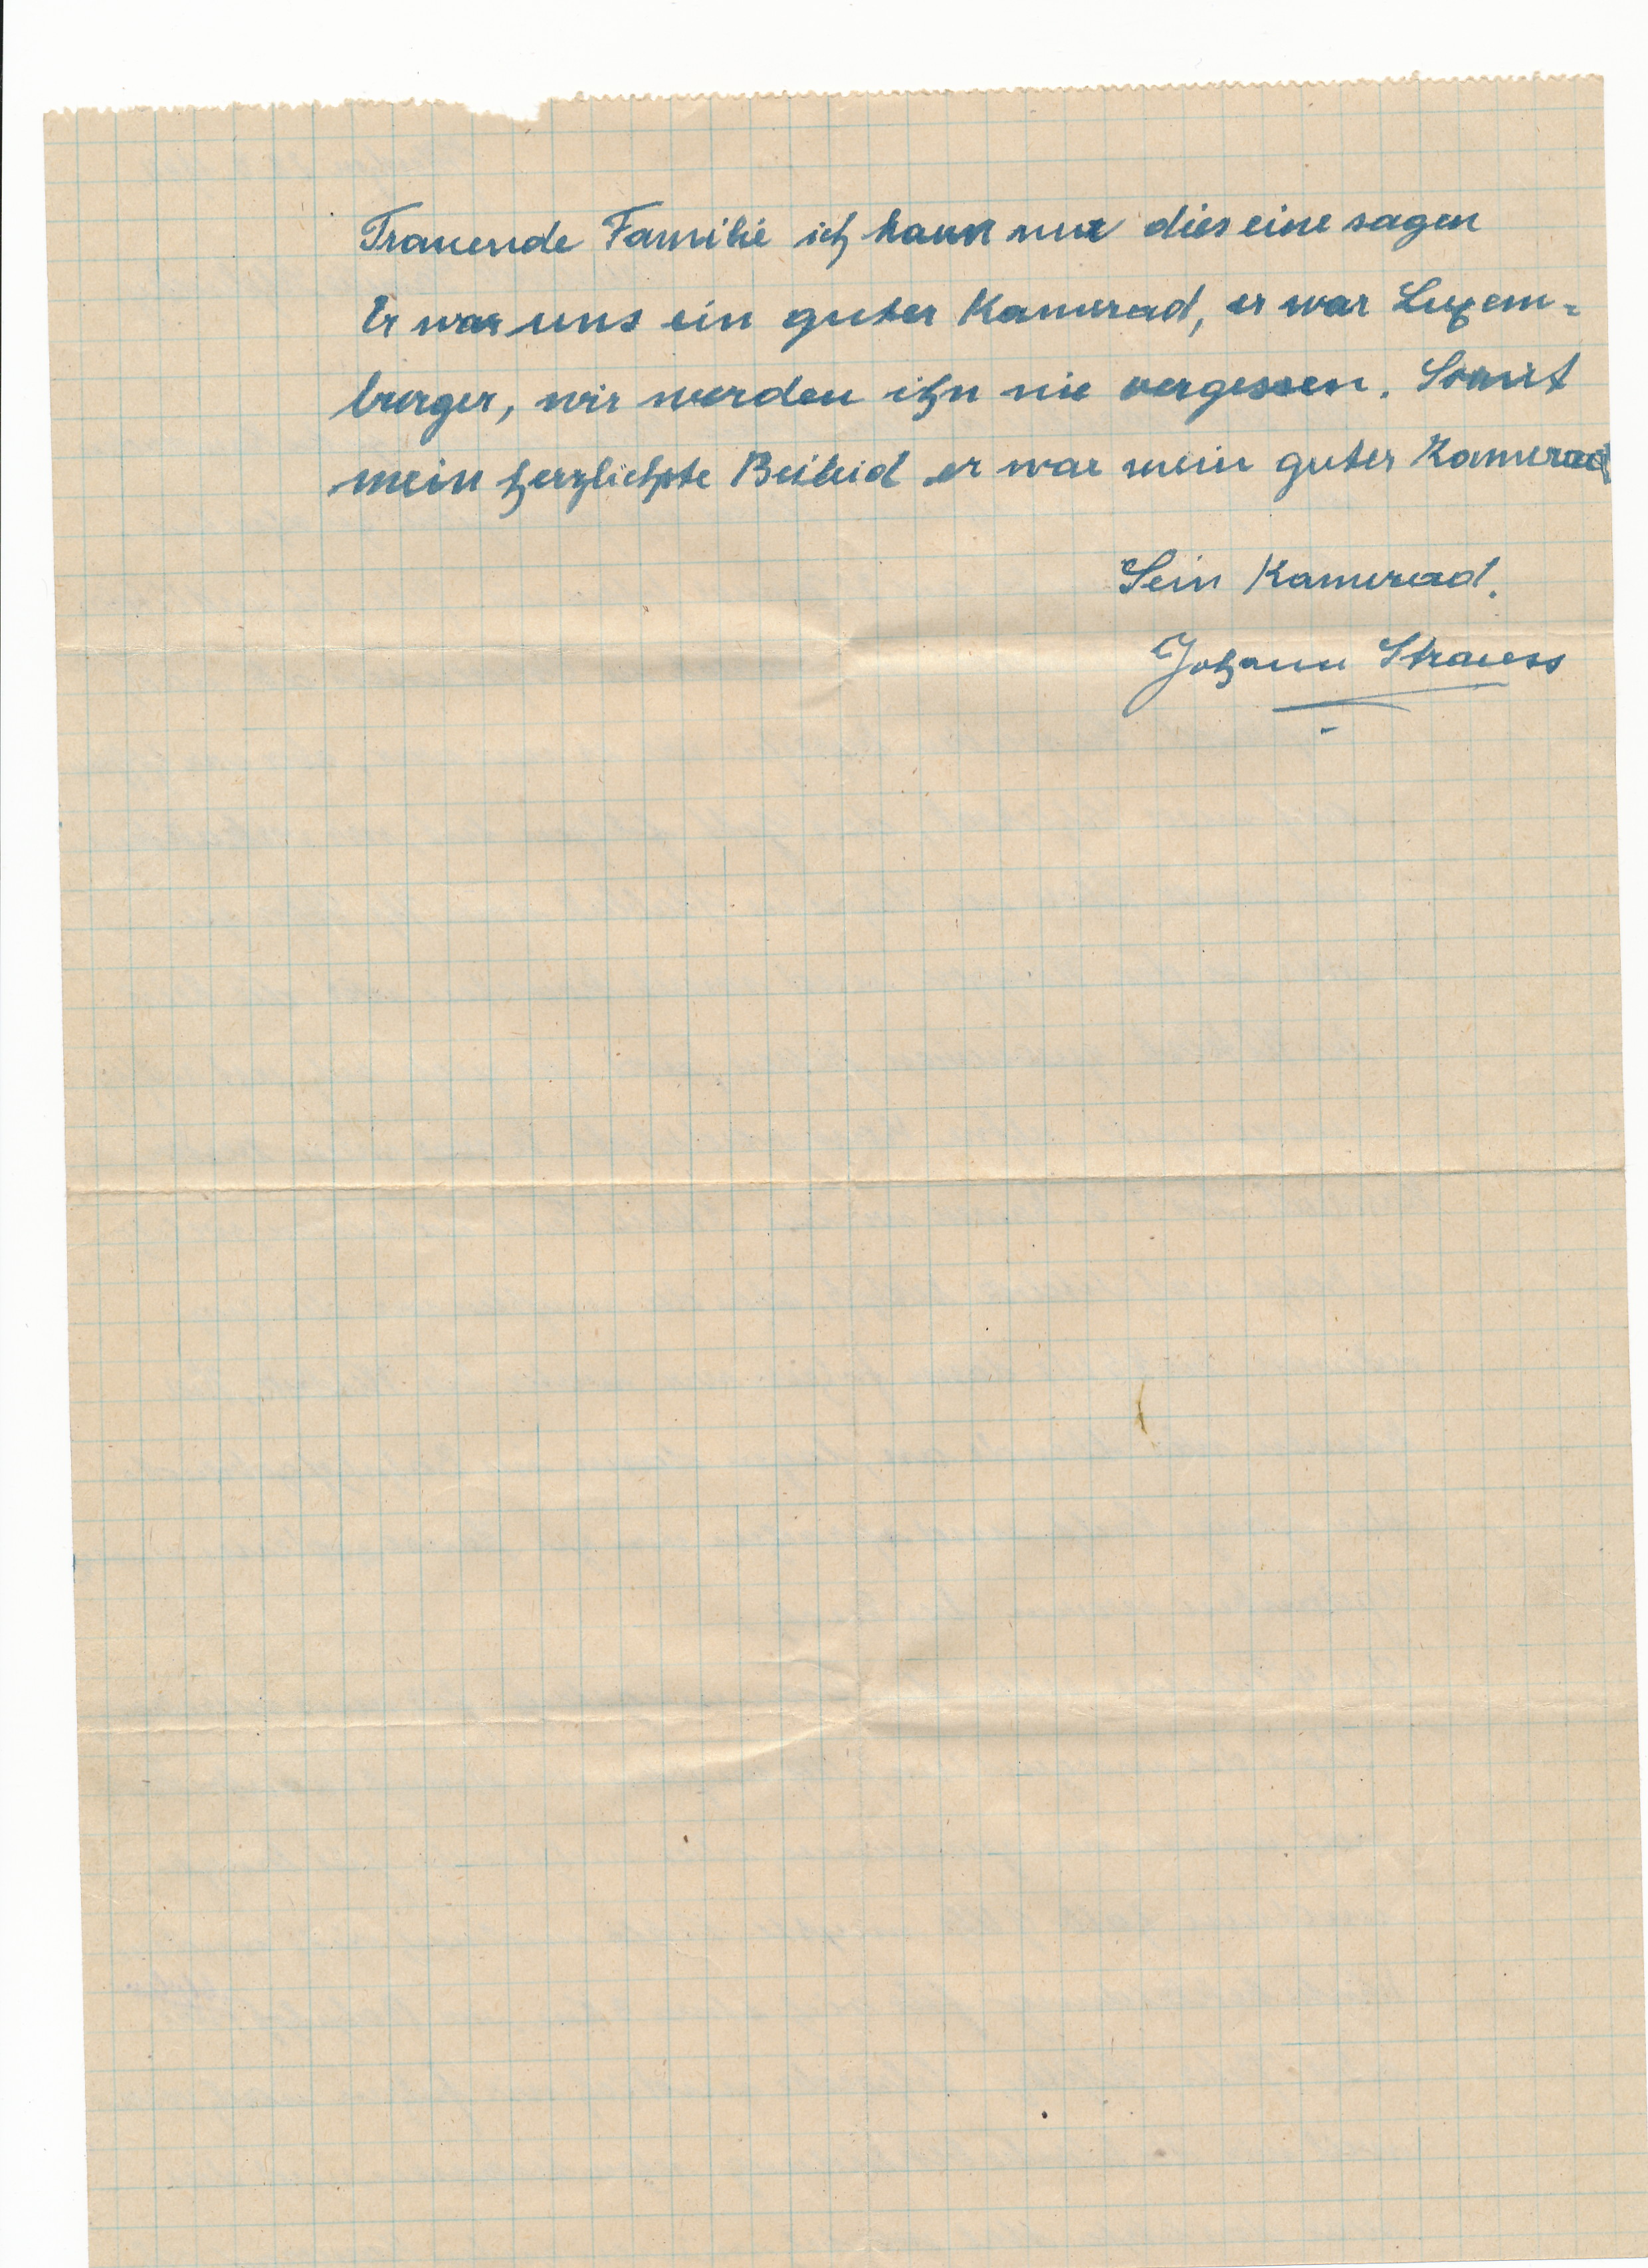 Trauende Familie ich kann nur dies eine sagen
Er war uns ein guter Kamerad, er war Luxem=
burger, wir werden ihn nie vergessen. Somit
mein herzlichste Beileid er war mein guter Kamerad
Sein Kamerad.
Johann Strauss